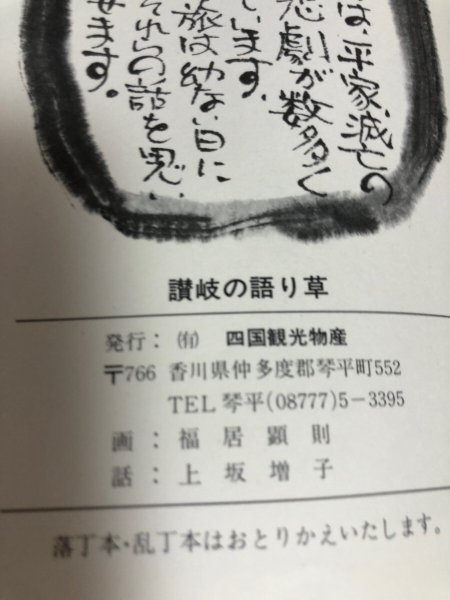 は、平家滅亡の
悲劇が数多く
います。
旅は幼ない日に
それらの話を思い
せます。
讃岐の語り草
発行：㈲ 四国観光物産
〒766 香川県仲多度郡琴平町552
TEL琴平(08777)5-3395
画：福居顕則
話：上坂増子
落丁本・乱丁本はおとりかえいたします。